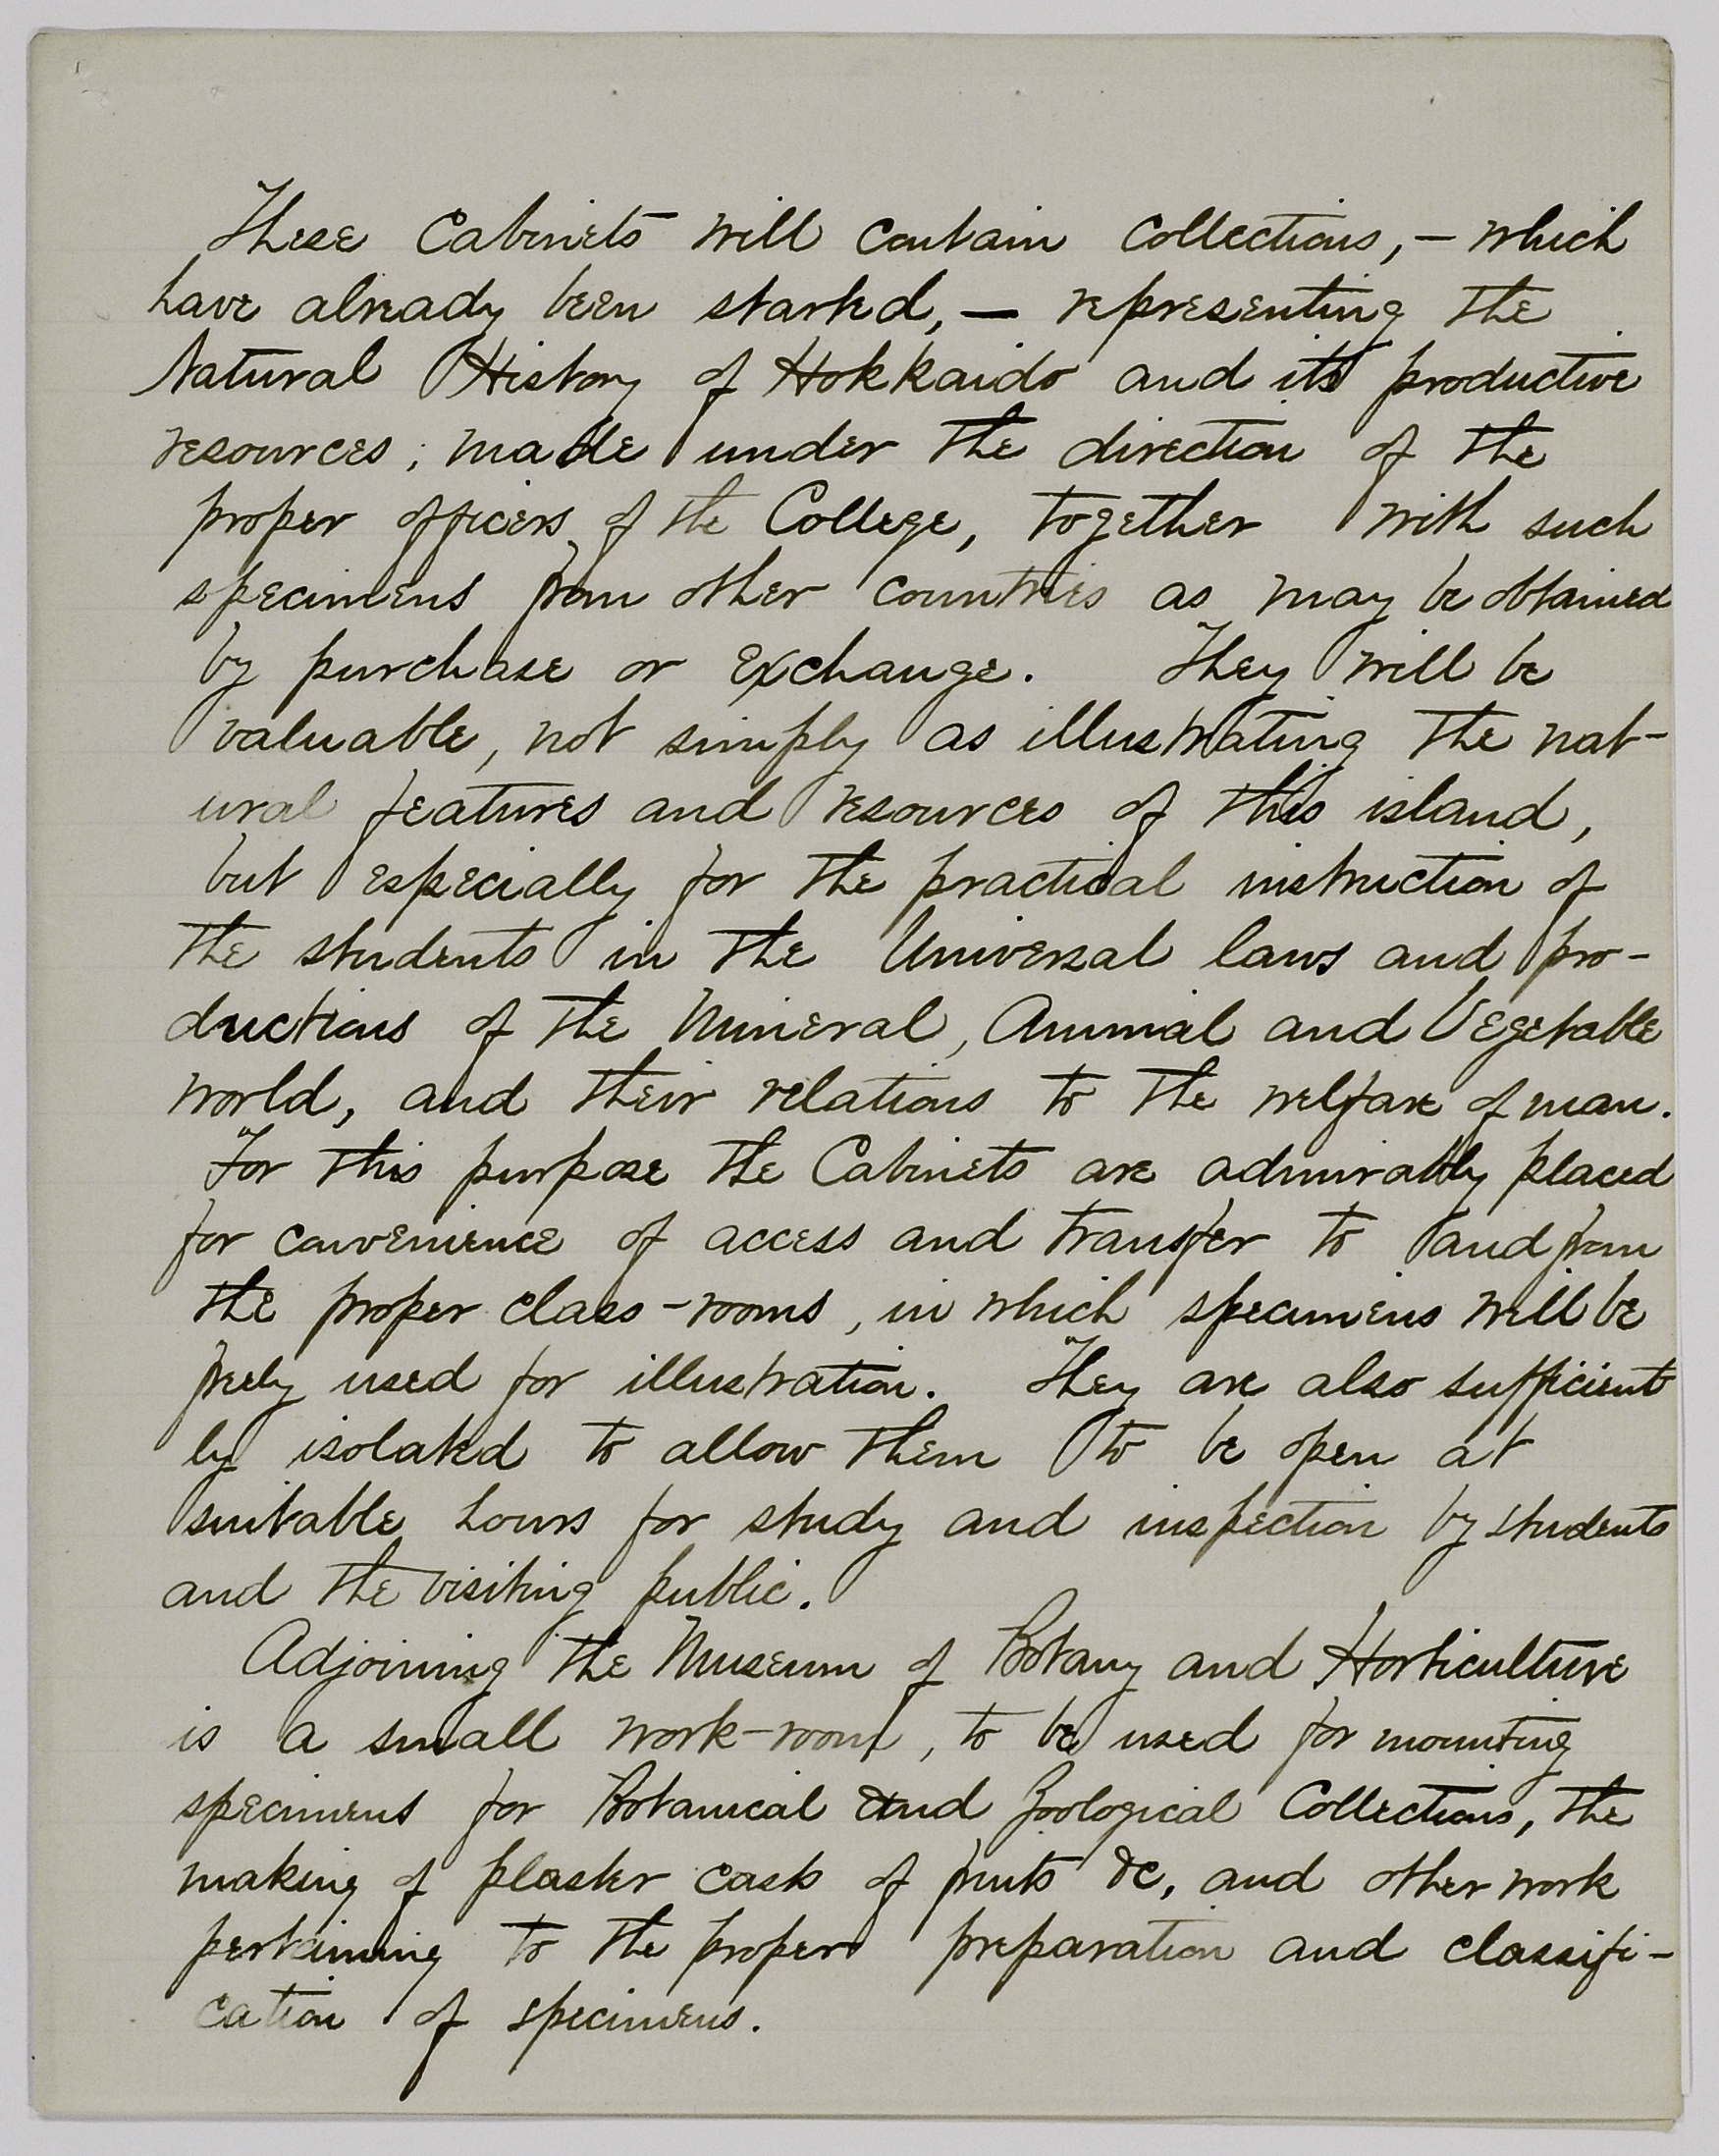 These Cabinets will contain collections, — which
have already been started, — representing the
Natural History of Hokkaido and its productive
resources; made under the direction of the
proper officers of the College, together with such
specimens from other countries as may be obtained
by purchase or exchange. They will be
valuable, not simply as illustrating the nat-
ural features and resources of this island,
but especially for the practical instruction of
the students in the Universal laws and pro-
ductions of the Mineral, Animal and Vegetable
world, and their relations to the welfare of man.
For this purpose the Cabinets are admirably placed
for convenience of access and transfer to and from
the proper class-rooms, in which specimens will be
freely used for illustration. They are also sufficient
ly isolated to allow them to be open at
suitable hours for study and inspection by students
and the visiting public.
Adjoining the Museum of Botany and Horticulture
is a small work-room, to be used for mounting
specimens for Botanical and Zoological Collections, the
making of plaster casts of fruits &c, and other work
pertaining to the proper preparation and classifi-
cation of specimens.